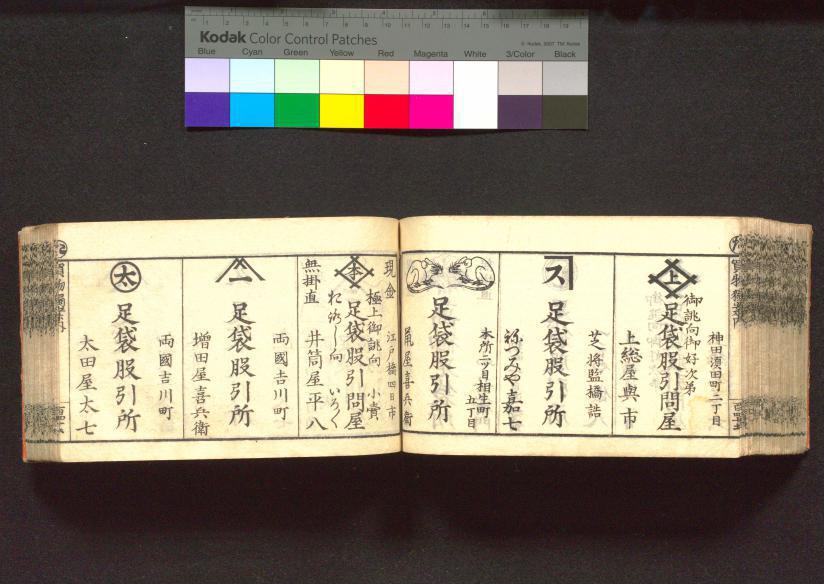 Kodak Color Control Patches
© Kodak, 2007 TM: Kodak
Blue Cyan Green Yellow Red Magenta White 3/Color Black
神田須田町二丁目
上
御誂向御好次第
足袋股引問屋
上総屋與市
芝将監橋詰
ス
足袋股引所
祢つみや嘉七
本所二ツ目相生町
五丁目
足袋股引所
鼠屋喜兵衛
現金
江戸橋四日市
極上御誂向
小賣
李
足袋股引問屋
いろ〳〵
無掛直
井筒屋平八
両國吉川町
一
足袋股引所
増田屋喜兵衛
両國吉川町
太
足袋股引所
太田屋太七